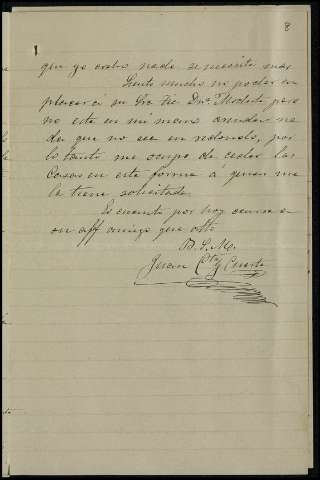 8
que yo creo nada se necesita mas
Siento mucho no poder com
placer á su Sra tia Dna Modesta, pero
no está en mi mano arrendar na
da que no sea en redondo, por
lo tanto me ocupo de ceder las
Cosas en esta forma a quien me
la tiene solicitada.
Es cuanto por hoy comunica
su aff amigo que atto
B. S. M.
Juan Cta y